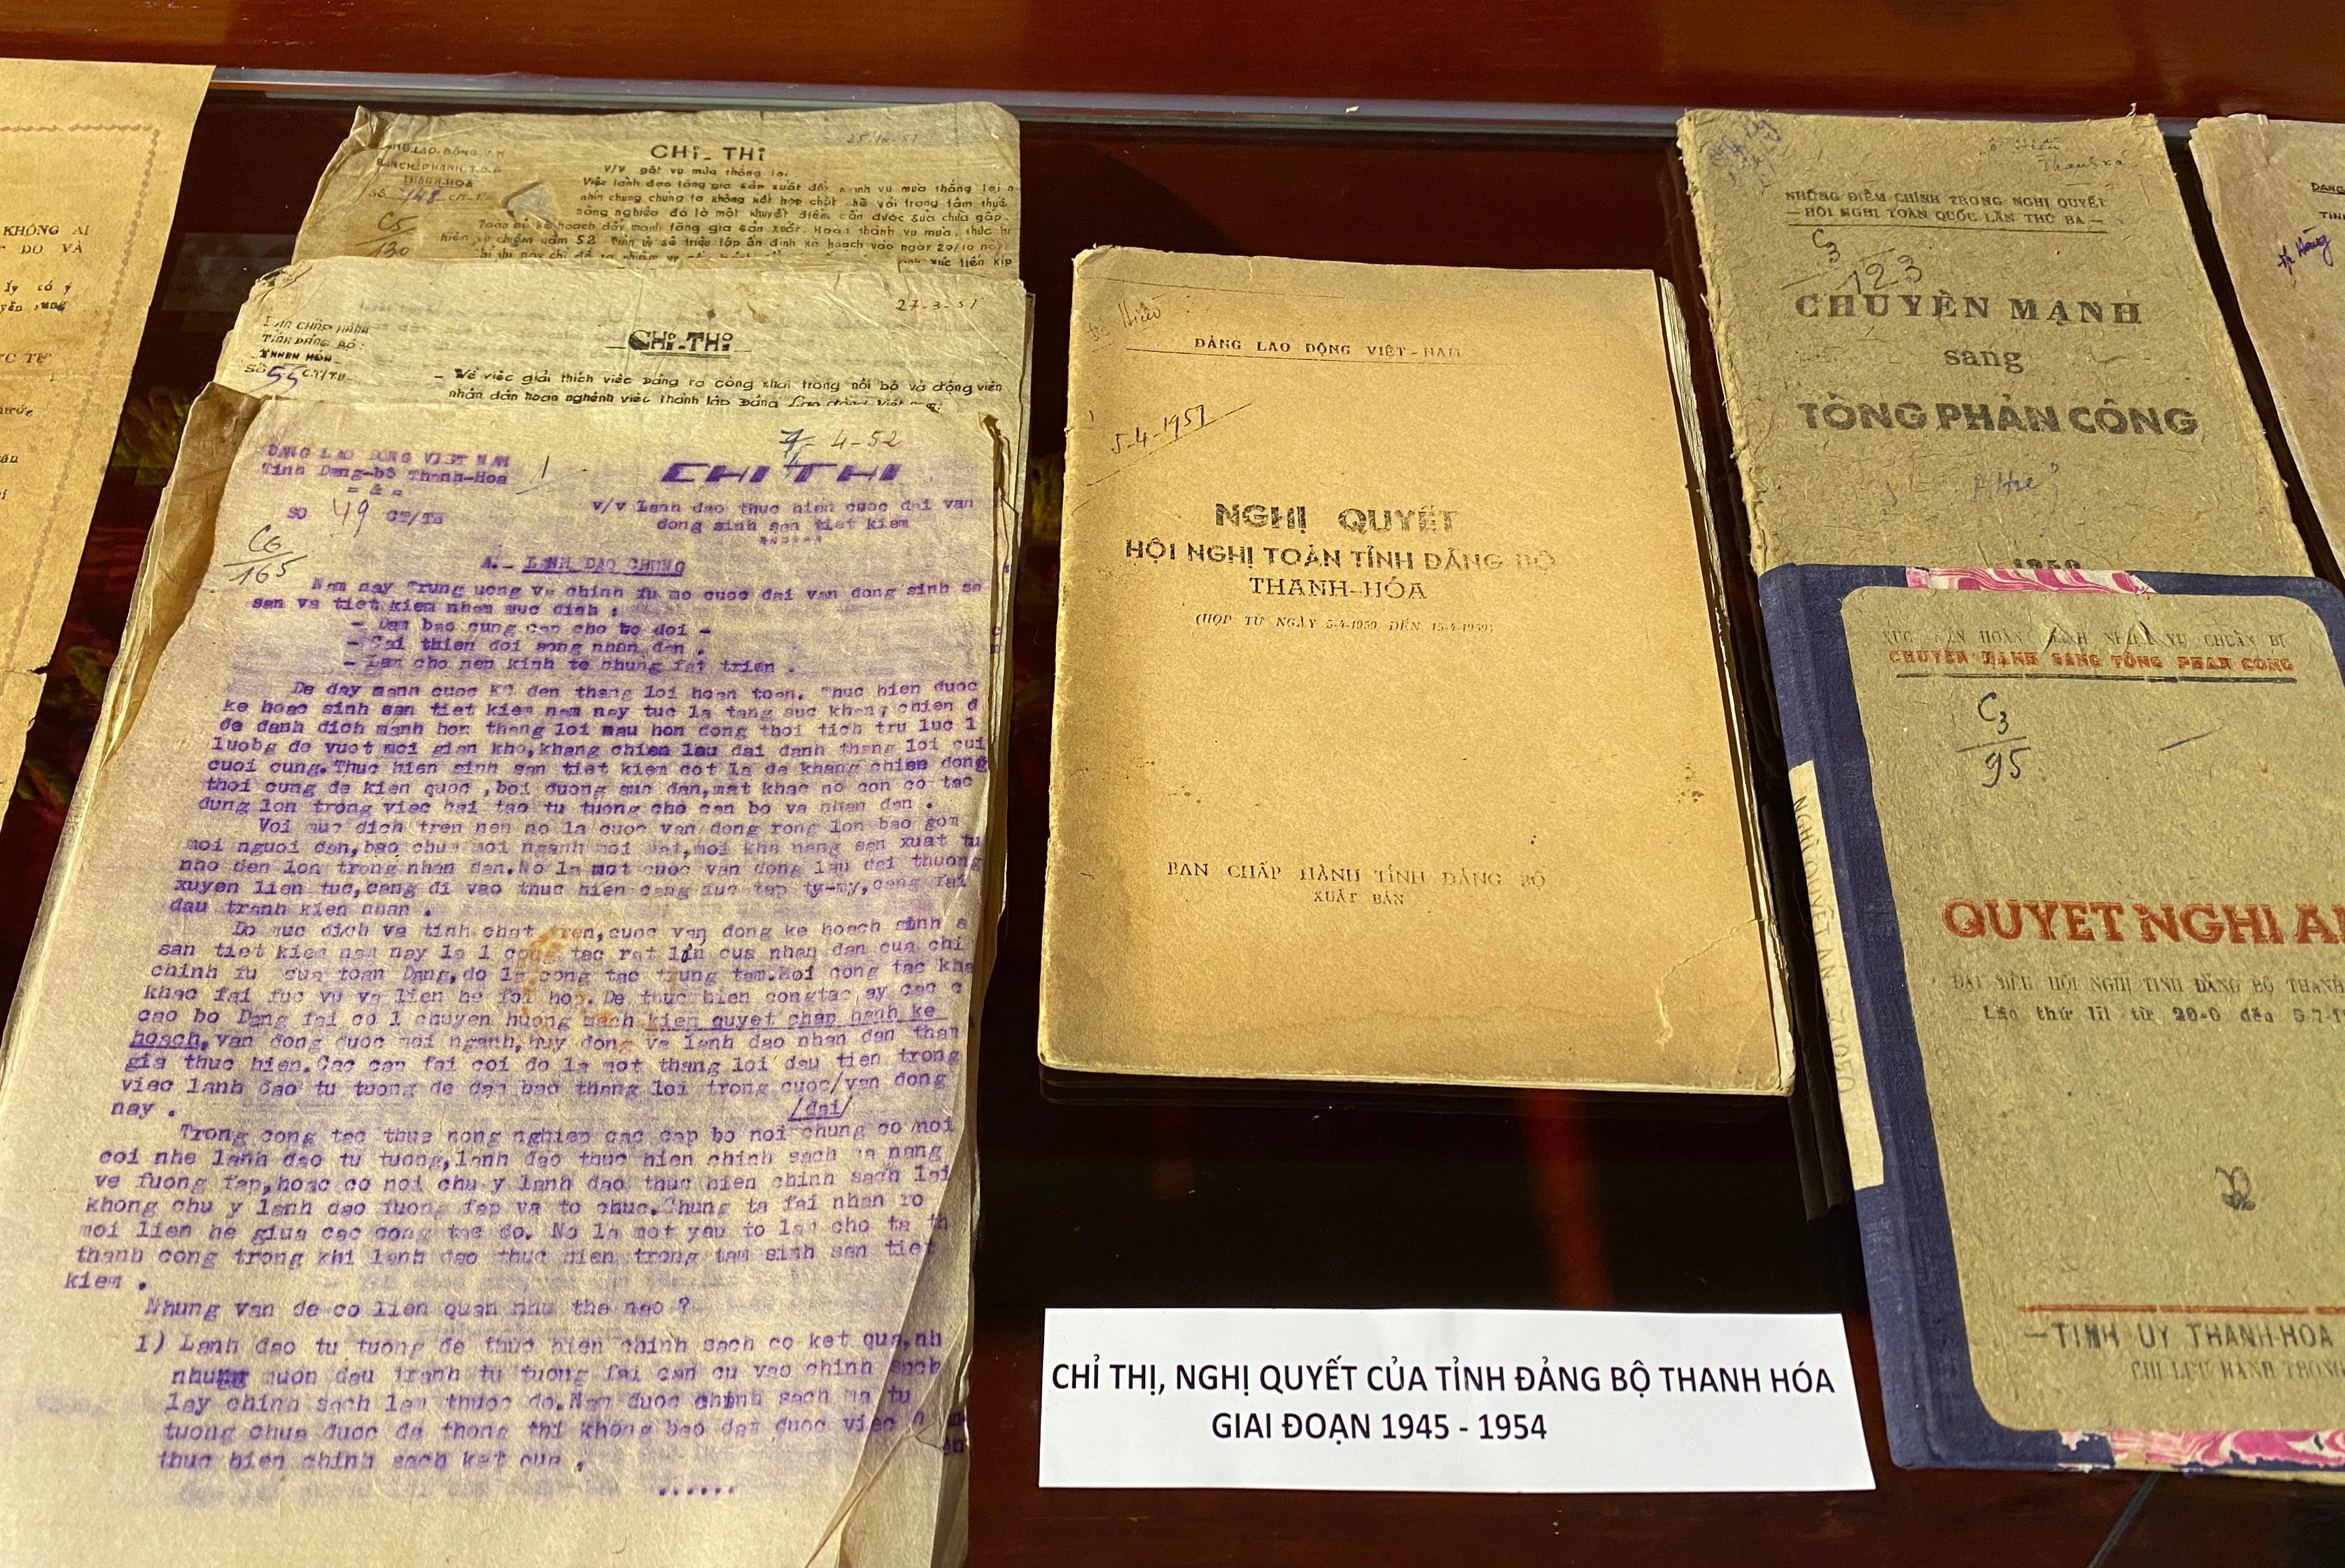 KHÔNG AI
DO VÀ
có ý
25-10-51
CHỈ-THỊ
v/v gặt vụ mùa thắng lợi
THANH-HÓA
Số 148
C5
130
Việc lãnh đạo tăng gia sản xuất đẩy mạnh vụ mùa thắng lợi
nhìn chung chúng ta không kết hợp chặt chẽ với trọng tâm thuế
nông nghiệp đó là một khuyết điểm cần được sửa chữa gấp.
27-3-51
BAN CHẤP HÀNH
TỈNH ĐẢNG BỘ
THANH HÓA
Số 55 CT/TU
CHỈ-THỊ
- Về việc giải thích việc Đảng ra công khai trong nội bộ và động viên
nhân dân hoan nghênh việc thành lập Đảng Lao động Việt
7-4-52
DANG LAO DONG VIET NAM
Tinh Dang-bo Thanh-Hoa
SO 49 CT/TU
C6
165
CHI THI
v/v Lanh dao thuc hien cuoc dai van
dong sinh san tiet kiem
A.- LANH DAO CHUNG
Nam nay Trung uong va chinh fu mo cuoc dai van dong sinh sa
san va tiet kiem nham muc dich :
- Dam bao cung cap cho bo doi -
- Cai thien doi song nhan dan .
- Lam cho nen kinh te chung fat trien .
De day manh cuoc KC den thang loi hoan toan. Thuc hien duoc
ke hoac sinh san tiet kiem nam nay tuc la tang suc khang chien d
de danh dich manh hon thang loi mau hon dong thoi tich tru luc l
luobg de vuot moi gian kho,khang chien lau dai danh thang loi cui
cuoi cung.Thuc hien sinh san tiet kiem cot la de khang chien dong
thoi cung de kien quoc ,boi duong suc dan,mat khac no con co tac
dung lon trong viec cai tao tu tuong cho can bo va nhan dan .
Voi muc dich tren nen no la cuoc van dong rong lon bao gom
moi nguoi dan,bao chua moi nganh moi mat,moi kha nang san xuat tu
nho den lon trong nhan dan.No la mot cuoc van dong lau dai thuong
xuyen lien tuc,cang di vao thuc hien cang fuc tap ty-my,cang fai
dau tranh kien nhan .
Do muc dich va tinh chat tren,cuoc van dong ke hoach sinh s
san tiet kiem nam nay la 1 cong tac rat lon cua nhan dan cua chi
chinh fu cua toan Dang,do la cong tac trung tam.Moi cong tac kha
khac fai fuc vu va lien he foi hop.De thuc hien congtac ay cac c
cao bo Dang fai co 1 chuyen huong manh kien quyet chap hanh ke
hoach,van dong duoc moi nganh,huy dong va lanh dao nhan dan tham
gia thuc hien.Cac cap fai coi do la mot thang loi dau tien trong
viec lanh dao tu tuong de dam bao thang loi trong cuoc/van dong
nay . /dai/
Trong cong tac thue nong nghiep cac cap bo noi chung co noi
coi nhe lanh dao tu tuong,lanh dao thuc hien chinh sach ma nang
ve fuong fap,hoac co noi chu y lanh dao thuc hien chinh sach lai
khong chu y lanh dao fuong fap va to chuc.Chung ta fai nhan ro
moi lien he giua cac cong tac do. No la mot yeu to lam cho ta th
thanh cong trong khi lanh dao thuc hien trong tam sinh san tiet
kiem .
Nhung van de co lien quan nhu the nao ?
1) Lanh dao tu tuong de thuc hien chinh sach co ket qua,nh
nhung muon dau tranh tu tuong fai can cu vao chinh sach
lay chinh sach lam thuoc do.Nam duoc chinh sach ma tu
tuong chua duoc da thong thi khong bao dam duoc viec
thuc hien chinh sach ket qua .
ĐẢNG LAO ĐỘNG VIỆT-NAM
5-4-1951
NGHỊ QUYẾT
HỘI NGHỊ TOÀN TỈNH ĐẢNG BỘ
THANH-HÓA
(HỌP TỪ NGÀY 5-4-1950 ĐẾN 15-4-1950)
BAN CHẤP HÀNH TỈNH ĐẢNG BỘ
XUẤT BẢN
NHỮNG ĐIỂM CHÍNH TRONG NGHỊ QUYẾT
— HỘI NGHỊ TOÀN QUỐC LẦN THỨ BA —
C3
123
CHUYỂN MẠNH
sang
TỔNG PHẢN CÔNG
1950
XÚC TIẾN HOÀN THÀNH NHIỆM VỤ CHUẨN BỊ
CHUYỂN MẠNH SANG TỔNG PHẢN CÔNG
C3
95
QUYẾT NGHỊ A
ĐẠI BIỂU HỘI NGHỊ TỈNH ĐẢNG BỘ THANH
Lần thứ III từ
TỈNH ỦY THANH-HÓA
CHỈ LƯU HÀNH TRONG
CHỈ THỊ, NGHỊ QUYẾT CỦA TỈNH ĐẢNG BỘ THANH HÓA
GIAI ĐOẠN 1945 - 1954